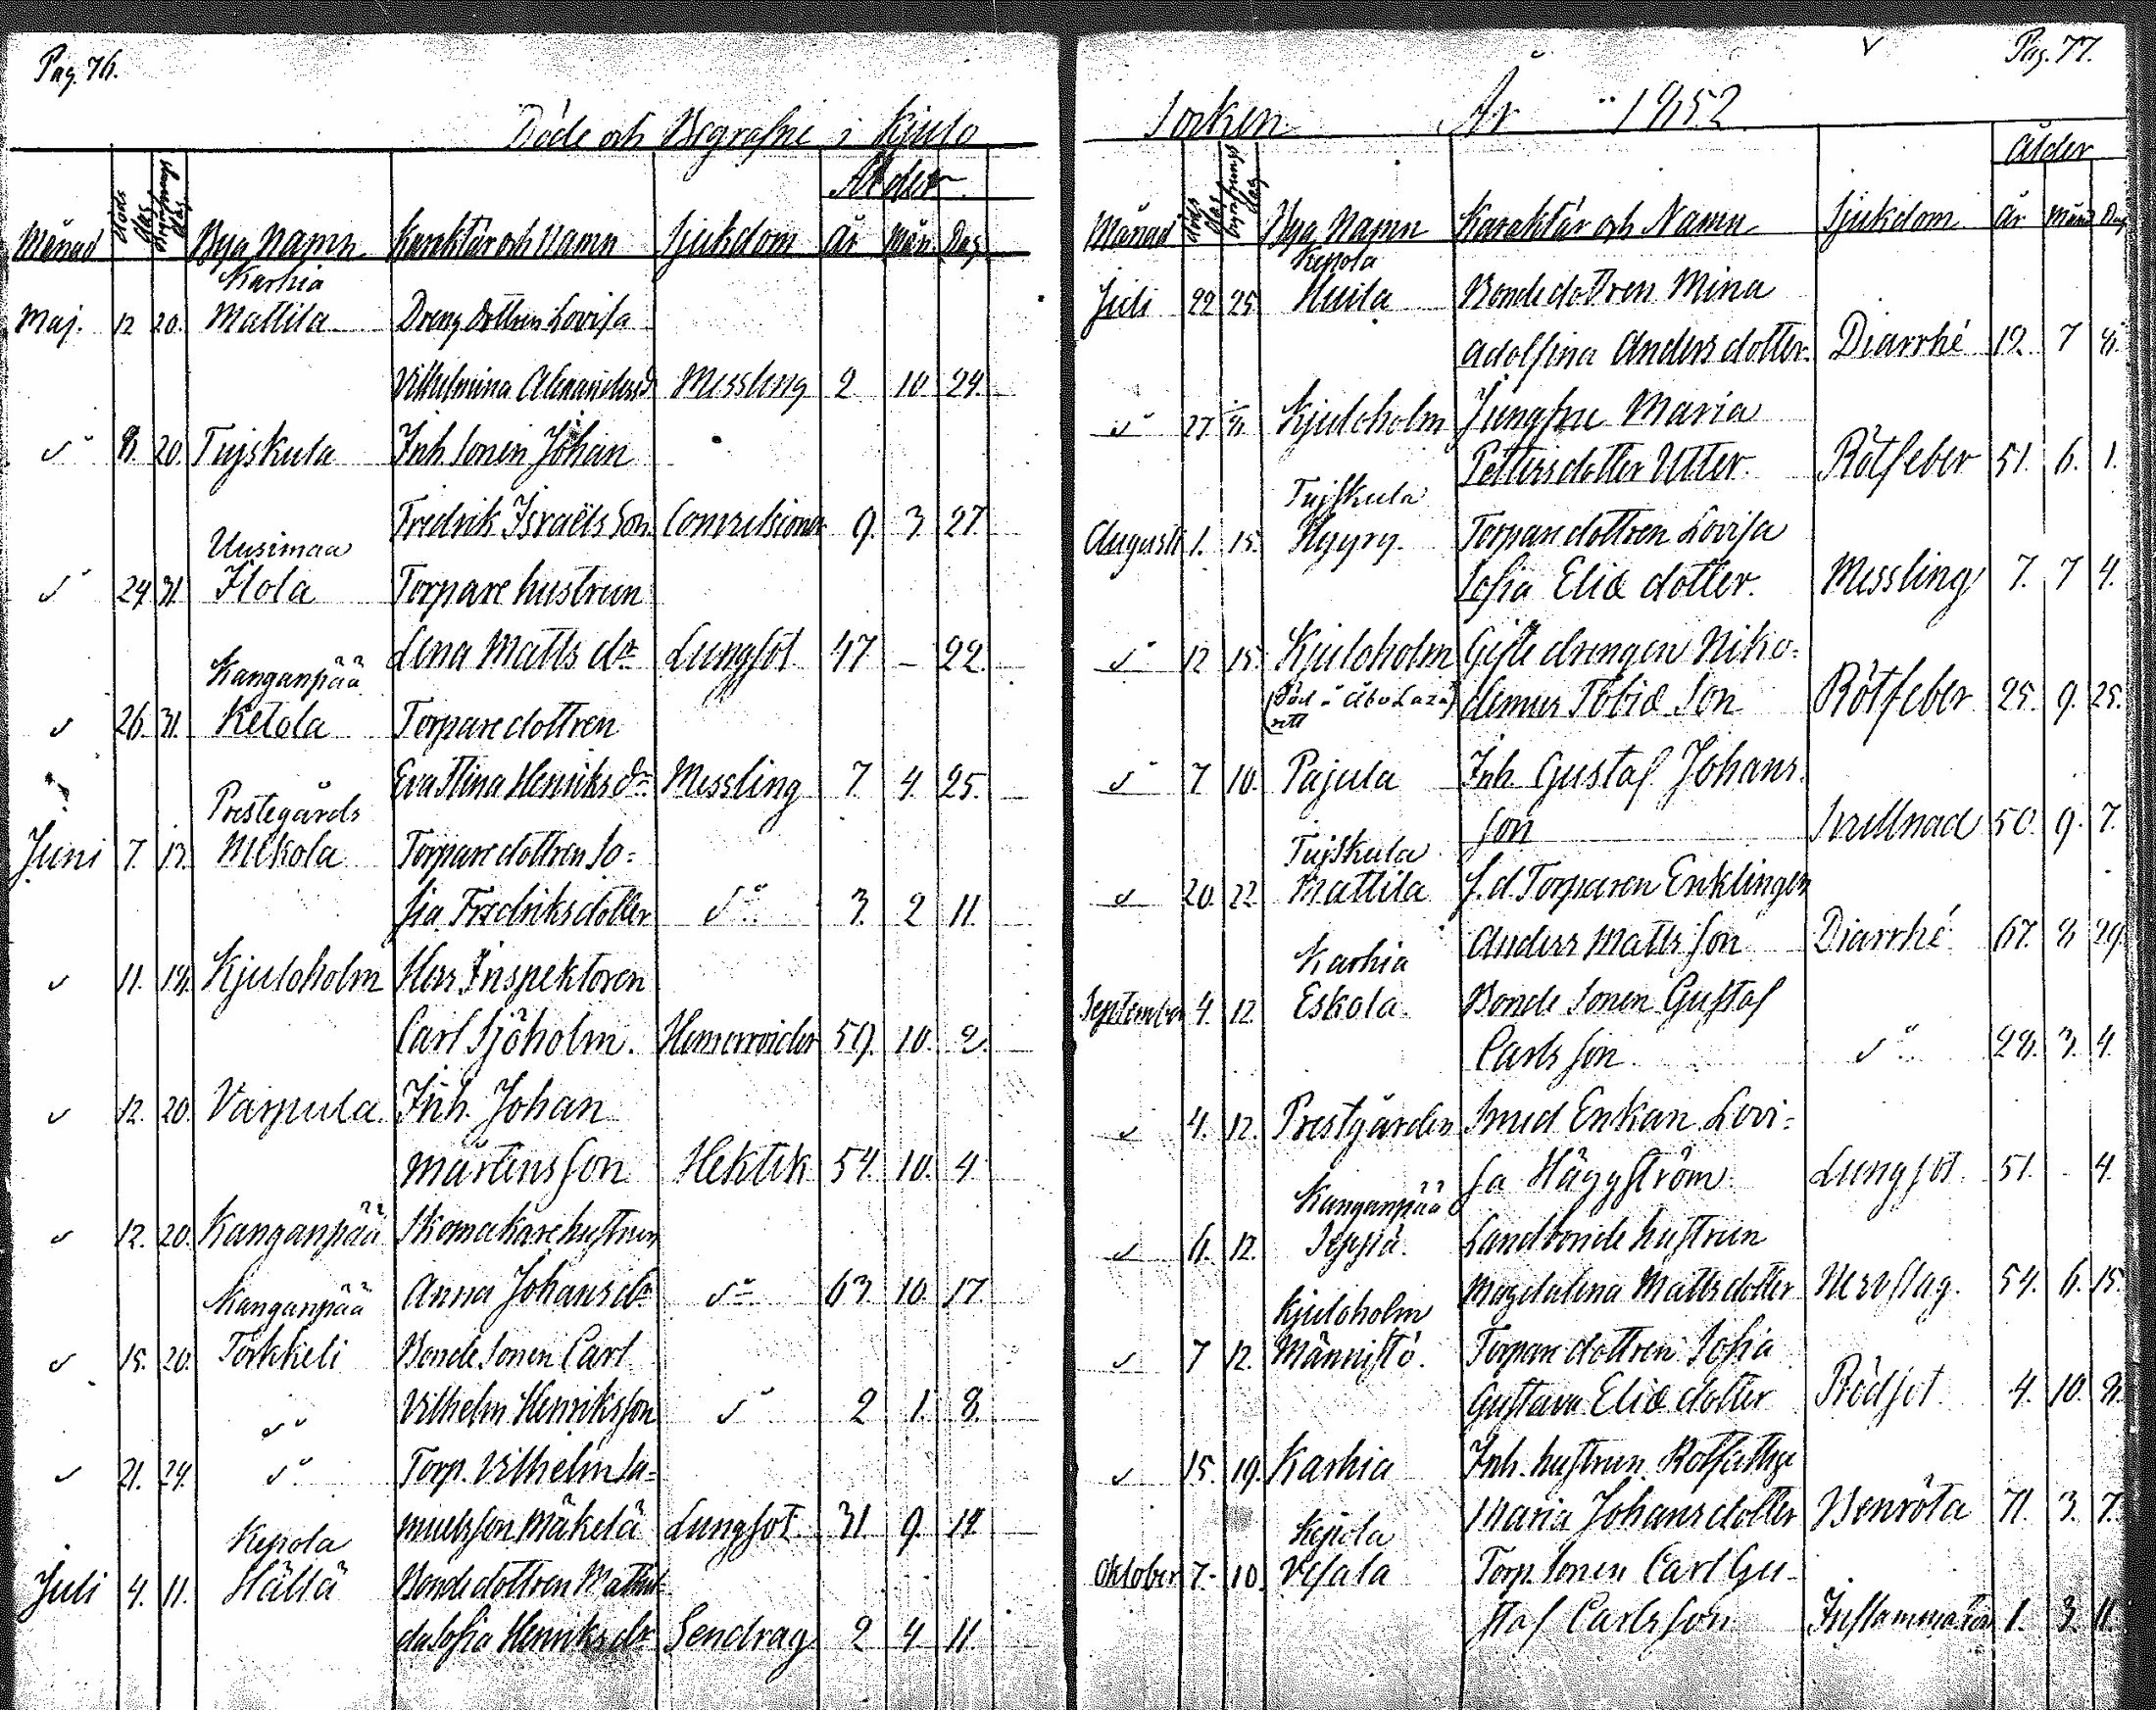 Pag. 76.
Döde och Begrafne i Kjulo
Månad Döds dag Begrafnings dag Bya Namn Karaktär och Namn Sjukdom Ålder År Mån. Dag
Karhia
Maj. 12 20. Mattila Dreng dottren Lovisa
Vilhelmina Alexandersd Messling 2 10 24.
d:o 8. 20. Tujskula Inh. sonen Johan
Fredrik Israëls son Convulsioner 9. 3 27
Uusimaa
d:o 24 31 Ilola Torpare hustrun
Lena Matts dr Lungsot 47 – 22.
Kanganpää
d:o 26. 31. Ketola Torpare dottren
Eva Stina Henriks dr Messling 7. 4. 25.
Prestegårds
Juni 7. 13. Mikola Torpare dottren So=
fia Fredriksdotter d:o 3. 2 11.
d:o 11. 18. Kjuloholm Herr Inspektoren
Carl Sjöholm. Hemorroider 59. 10. 2.
d:o 12. 20. Varpula Inh. Johan
Mårtensson Hektik 54. 10. 4
d:o 12. 20. Kanganpää Skomakare hustrun
Anna Johansdr d:o 63 10. 17.
Kanganpää
d:o 15. 20. Torkkeli Bonde sonen Carl
d:o Vilhelm Henriksson d:o 2 1. 8.
d:o 21. 24. d:o Torp. Vilhelm Sa=
muelsson Mäkelä Lungsot. 31 9. 12
Kepola
Juli 4. 11. Hällä Bondedottren Mathil
da Sofia Henriksdr Sendrag 2 4 11.
Pag. 77.
Socken År 1852
Månad döds dag begrafnings dag Bya Namn Karaktär och Namn Sjukdom Ålder År Mån Dag
Kepola
Juli 22 25 Huila Bonde dottren Mina
Adolfina Anders dotter. Diarrhé 12. 7 8.
d:o 27 8 Kjuloholm Jungfru Maria
Pettersdotter Utter. Rötfeber 51. 6. 1.
Tujskula
Augusti 1. 15. Hyyry. Torpare dottren Lovisa
Sofia Eliæ dotter. Messling 7. 7 4.
d:o 12 15. Kjuloholm Gifte drengen Niko=
(Död i Åbo Laza) demus Tobiæ Son Rötfeber 25. 9. 25.
rett
d:o 7 10. Pajula Inh. Gustaf Johans
son Svullnad 50. 9. 7.
Tujskula
d:o 20. 22. Mattila f.d. Torparen Enklingen
Anders Matts son Diarrhé 67. 8 29.
Karhia
September 4. 12. Eskola. Bonde sonen Gustaf
Carls son d:o 28. 3. 4.
d:o 4. 12. Prestgården Smed Enkan Lovi=
sa Häggström Lungsot. 51. - 4.
Kanganpää
d:o 6. 12. Seppä. Landbonde hustrun
Magdalena Mattsdotter Nervslag. 54. 6. 15.
Kjuloholm
d:o 7 12. Männistö. Torpare dottren Sofia
Gustava Eliæ dotter Rödsot. 4. 10. 8.
d:o 15. 19. Karhia Inh. hustrun Rotfattige
Maria Johans dotter Benröta 71. 3. 7.
Kepola
Oktober 7. 10. Vesala Torp. sonen Carl Gu-
staf Carlsson Inflammation 1. 3. 11.